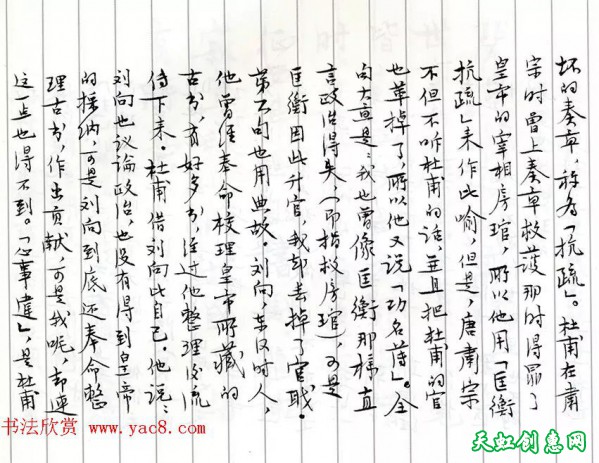 坏的奏章，称为「抗疏」。杜甫在肃
宗时曾上奏章救护那时得罪了
皇帝的宰相房琯，所以他用「匡衡
抗疏」来作比喻，但是，唐肃宗
不但不听杜甫的话，并且把杜甫的官
也革掉了，所以他又说「功名薄」。全
句大意是：我也曾像匡衡那样直
言政治得失（即指救房琯），可是
匡衡因此升官，我却丢掉了官职。
第六句也用典故。刘向，东汉时人，
他曾经奉命校理皇帝所藏的
古书，有好多书，经过他整理后流
传下来。杜甫借刘向比自己。他说：
刘向也议论政治，也没有得到皇帝
的採纳，可是刘向到底还奉命整
理古书，作出贡献，可是我呢，却连
这一点也得不到。「心事违」，是杜甫
书法欣赏 www.yac8.com
天虹创意网